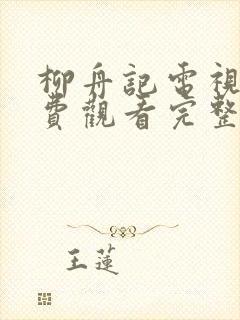 柳舟記電視
費觀看完整
王蓮